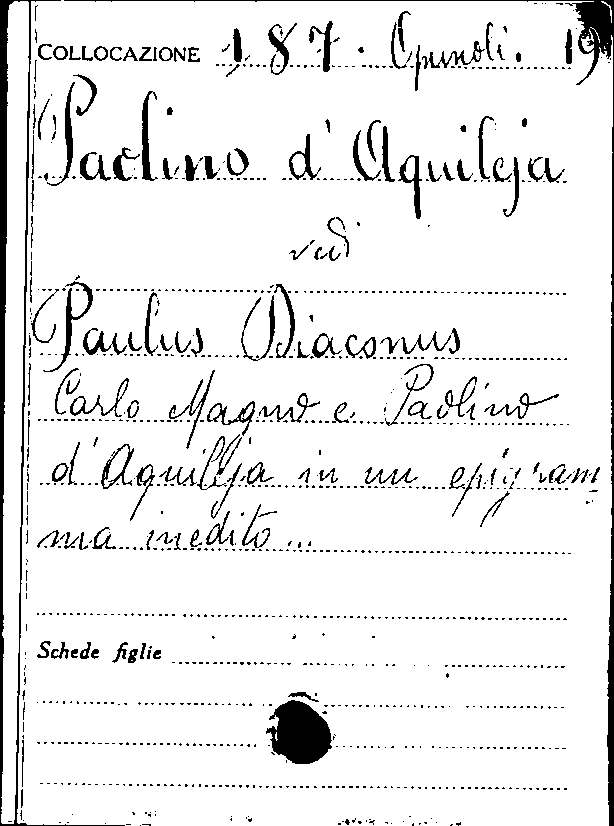 COLLOCAZIONE 187. Opuscoli. 19
Paolino d'Aquileja
vedi
Paulus Diaconus
Carlo Magno e Paolino
d'Aquileja in un epigram=
ma inedito...
Schede figlie